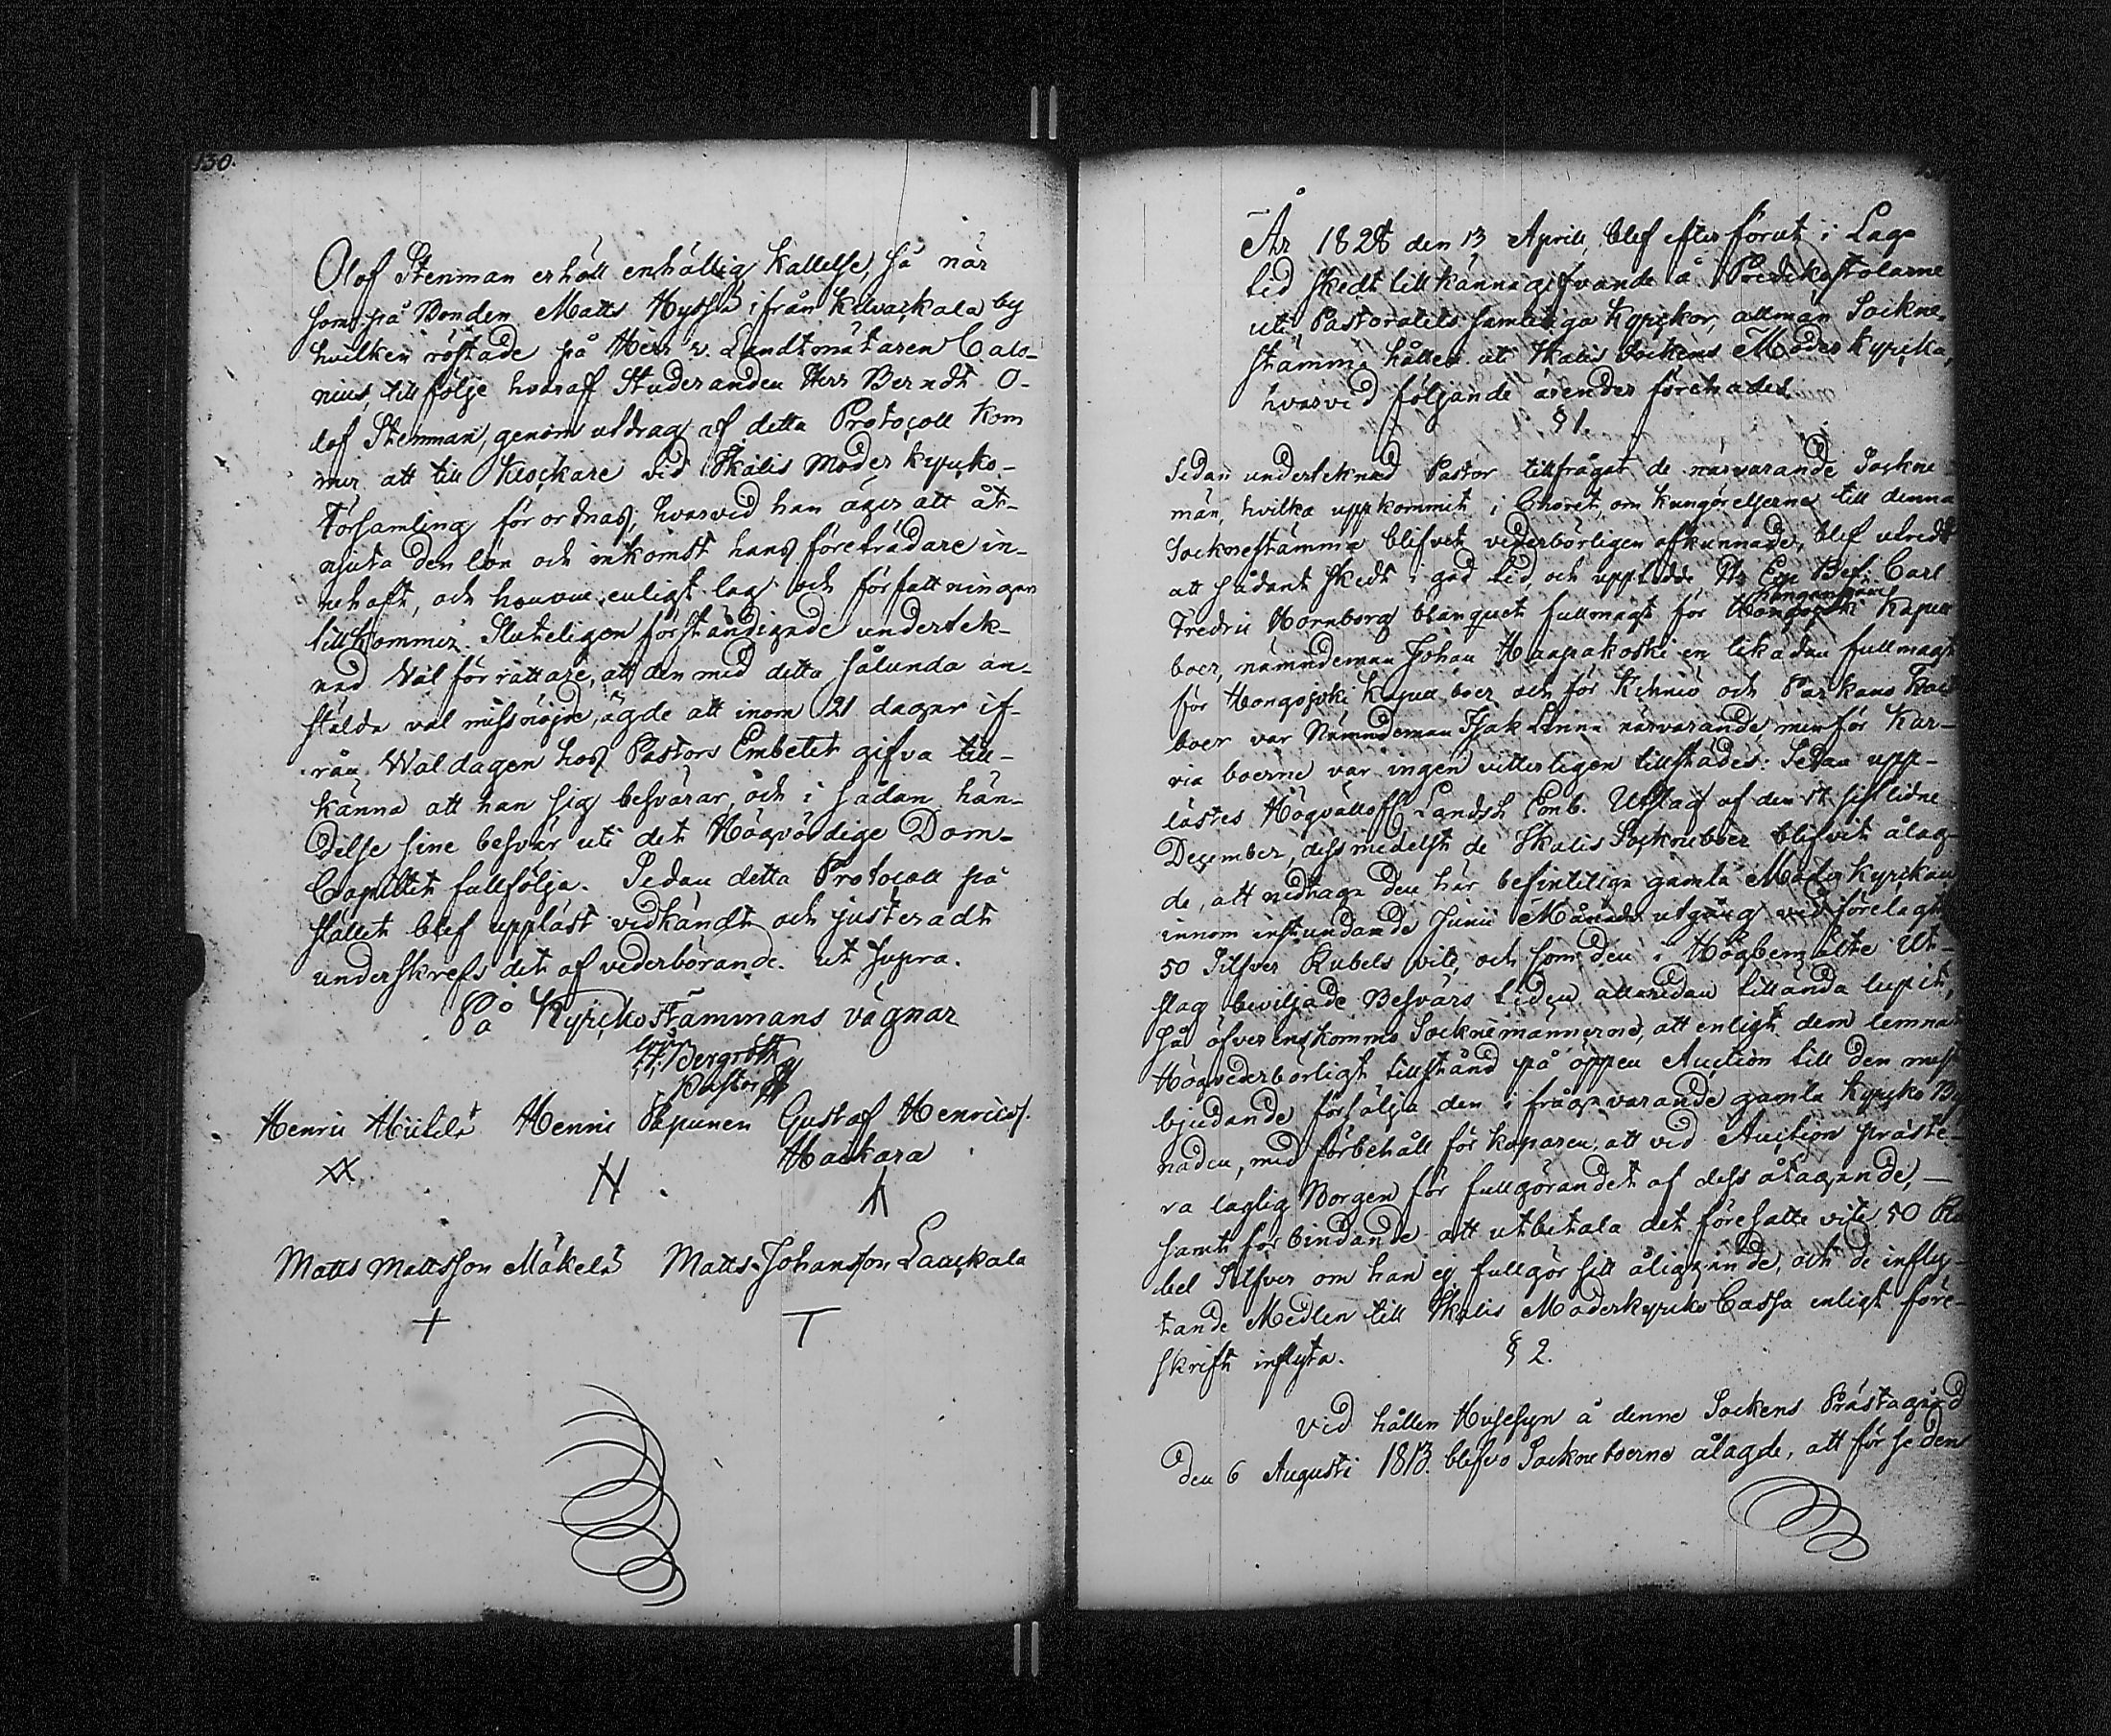 130.
Olof Stenman erhöll enhällig kallelse, så när
som på Bonden Matts Hyssä ifrån Kelvackala by
hvilken röstade på Herr v. Landtmätaren Calo-
nius, till följe hvaraf Studeranden Herr Berndt O-
lof Stenman, genom utdrag af detta Protocoll kom
mer att till Klockare vid Ikalis moder kyrcko-
Församling förordnas, hvarvid han äger att åt-
njuta den lön och inkomst hans företrädare in-
nehaft, och honom enligt lag och författningar
tillkommer. Sluteligen förständigade undertek-
nad Valförrättare, att den med detta sålunda an-
stälda val missnöjde, ägde att inom 21 dagar if-
rån Waldagen hos Pastors Embetet gifva till-
känna att han sig besvärar, och i sådan hän-
delse sine besvär uti det Högvördige Dom-
Capitlet fullfölja. Sedan detta Protocoll på
stället blef uppläst vidkändt och justeradt
underskrefs det af vederbörande. ut supra.
På Kyrckostämmans vägnar
Bergroth
Pastor
Henric Hiitilä Henric Papunen Gustaf Henricss.
Haickara
Matts Mattsson Mäkelä Matts Johansson Laackala
År 1828 den 13 April, blef efter förut i Laga
tid skedt tillkännagifvande å Predikostolarne
uti Pastoratets samtelige Kyrckor, allmän Sockne-
stämma hållen uti Ikalis Sockens Moderkyrcka,
hvarvid följande ärender företades.
§ 1.
Sedan underteknad Pastor tillfrågat de närvarande Sockne
män, hvilka uppkommit i Choret, om kungörelserna till denna
Socknestämma blifvit vederbörligen afkunnade, blef utredt
att sådant skedt i god tid, och uppteddе Carl
Fredric Hornborg blanquet fullmagt för Kapell
boer, nämndeman Johan Haapakoski en likadan fullmagt
för Hongojoki Kapell boer och för Kihniö och Parkano
boer var Nämndeman Isak Linna närvarande, men för Kar-
via boerne var ingen vitterligen tillstädes. Sedan upp-
lästes Högvällofl Landsh Emb. Utslag af den sistlidne
December, dessmedelst de Ikalis Socknebor blifvit ålag-
de, att nedtaga den här befintliga gamla Moderkyrckan
innom instundande Junii Månads utgång vid förelagt
50 Silfver Rubels vite, och som den i Högbemälte Ut-
slag beviljade Besvärs tiden allaredan tilländа lupit,
Så öfverenskommo Socknemännerne, att enligt dem lemnat
Högvederbörligt tillstånd på öppen Auction till den mest
bjudande försälja den i frågavarande gamla Kyrcko By
naden, med förbehåll för köparen, att vid Auction preste-
ra laglig Borgen för fullgörandet af dess åtagande, —
samt förbindande att utbetala det föresatte vite 50 Ru
bel Silfver om han ej fullgör sitt åliggande, och de infly-
tande Medlen till Ikalis Moderkyrcko Cassa enligt före-
skrift inflyta.
§ 2.
Vid hållen Husesyn å denne Sockens Prästagård
den 6 Augusti 1813. blefvo Socknеboerne ålagde, att förse den